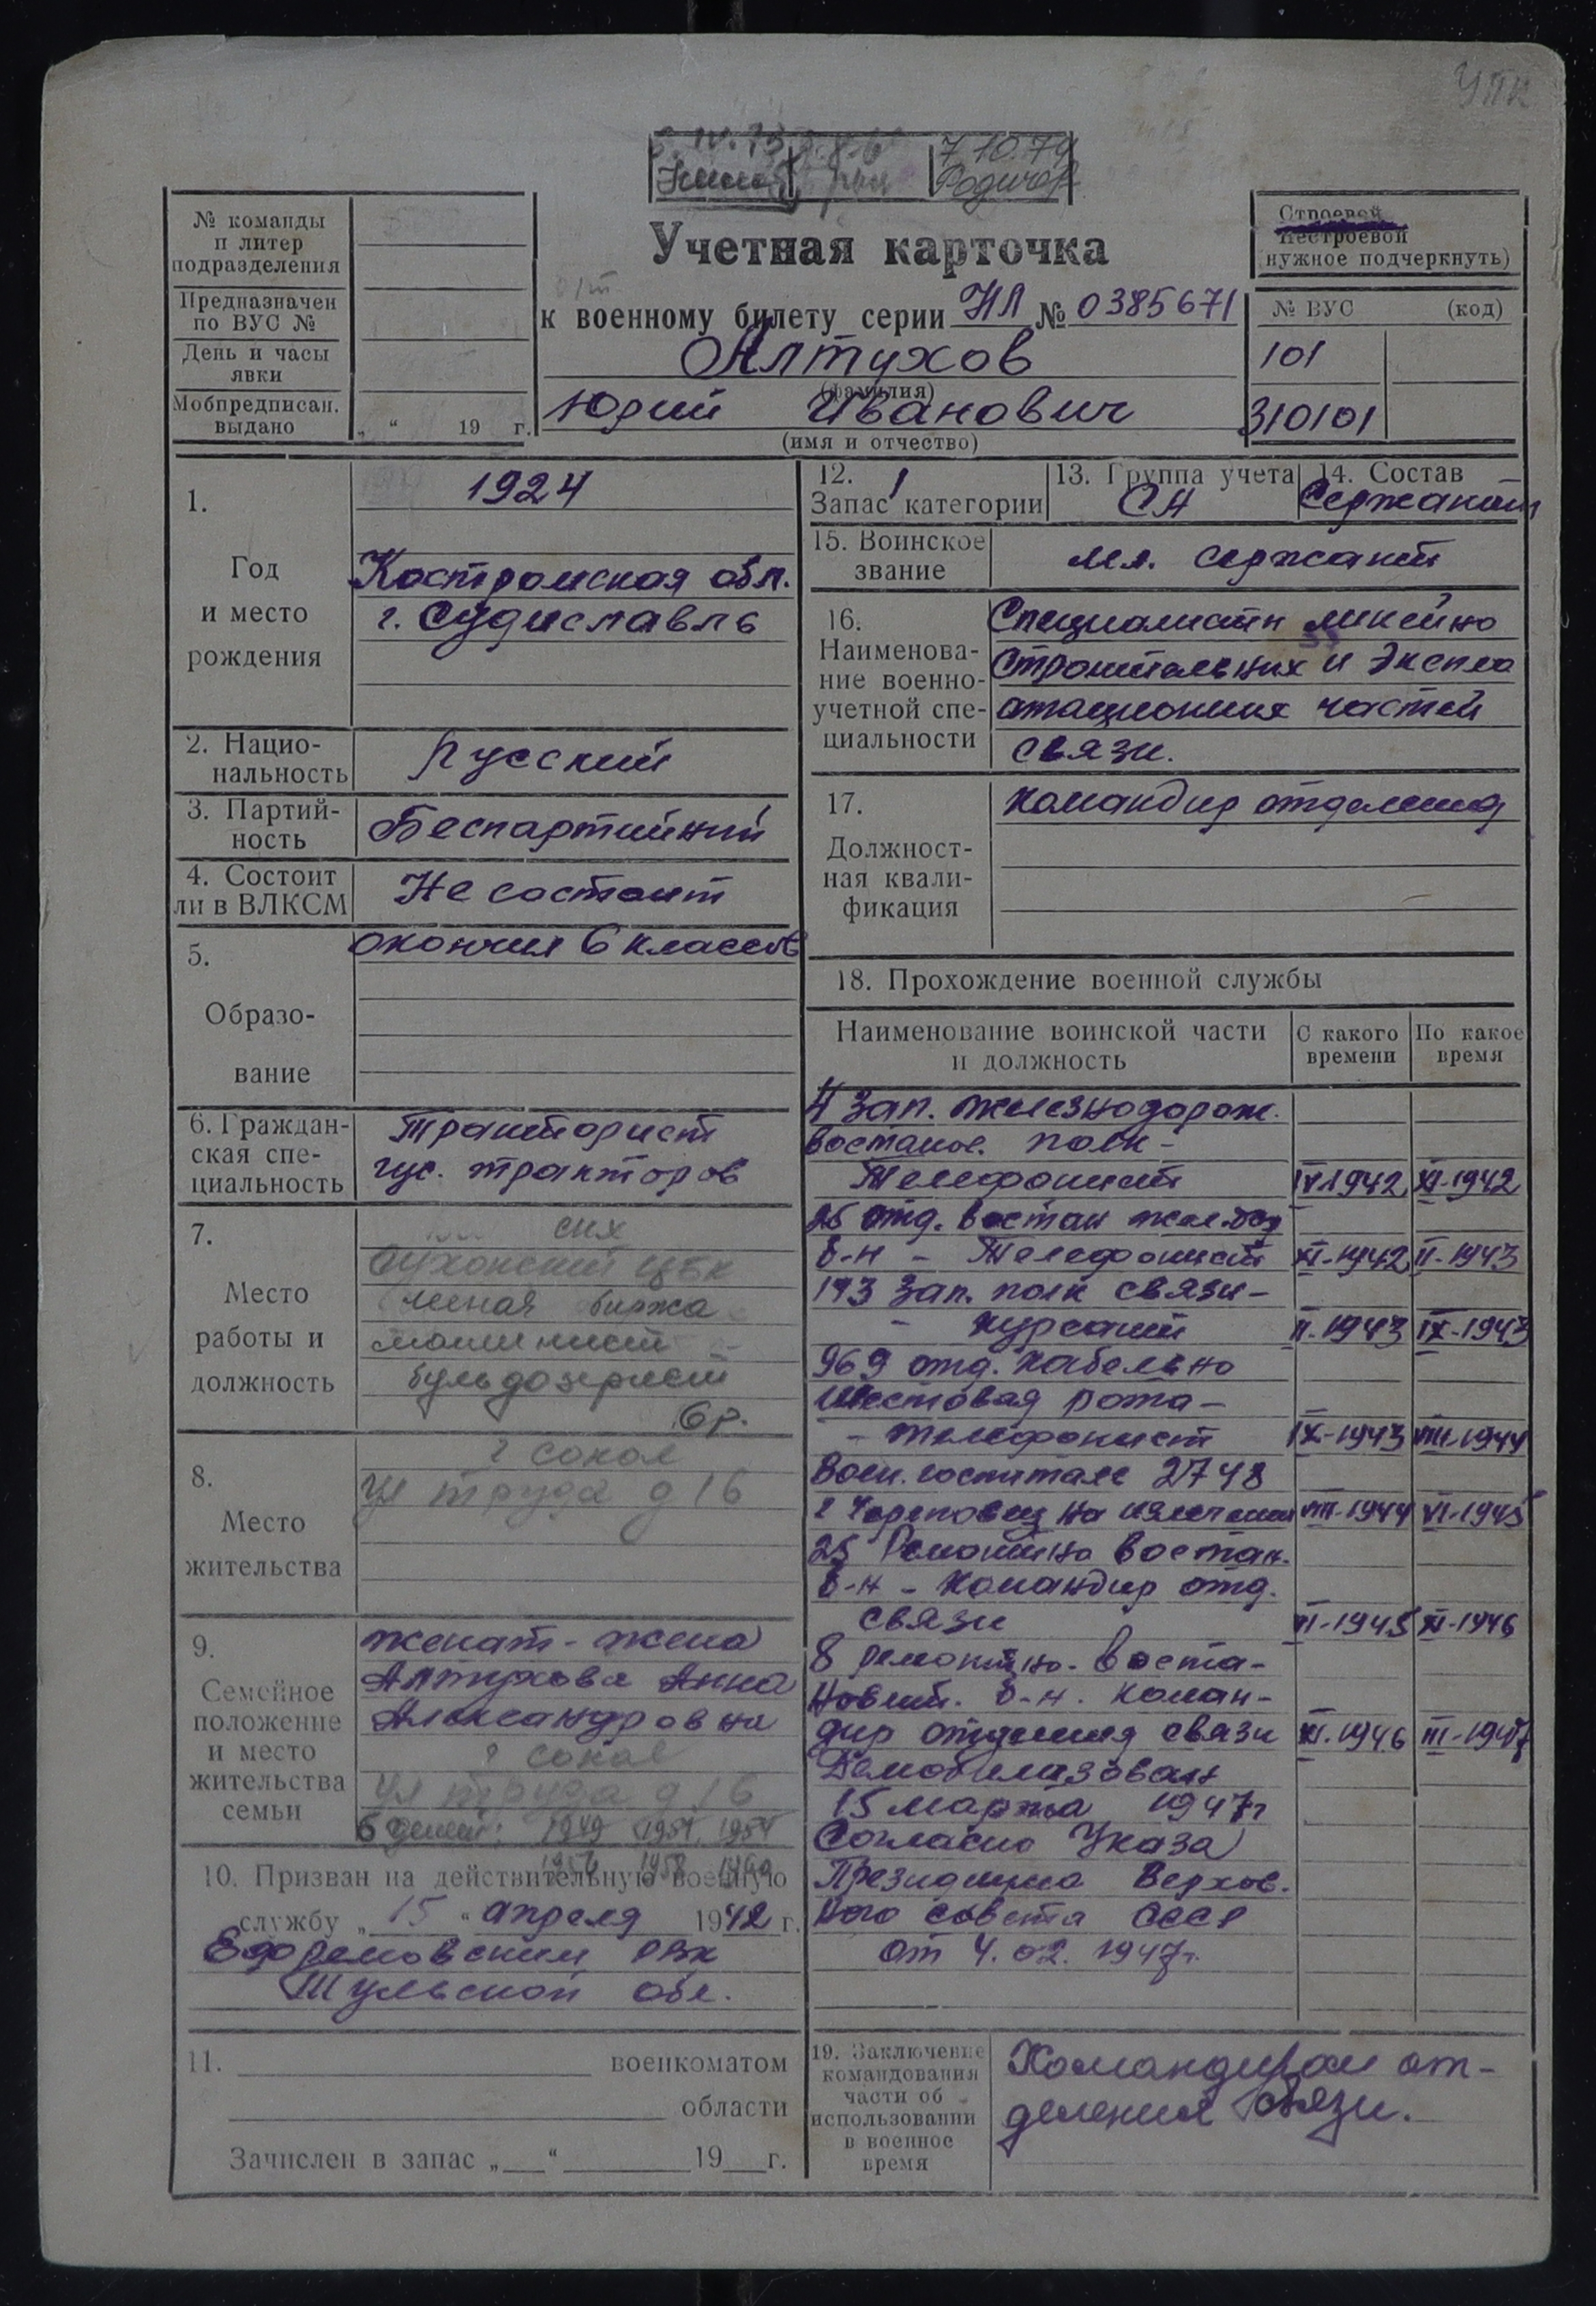 УПК
7 10.79
Родичев
№ команды
и литер
подразделения
Предназначен
по ВУС №
День и часы
явки
Мобпредписан.
выдано
„ “ 19 г.
Учетная карточка
к военному билету серии НЛ № 0385671
Алтухов
(фамилия)
Юрий Иванович
(имя и отчество)
Строевой
Нестроевой
(нужное подчеркнуть)
№ ВУС (код)
101
310101
1.
Год
и место
рождения
1924
Костромская обл.
г. Судиславль
2. Нацио-
нальность
Русский
3. Партий-
ность
Беспартийный
4. Состоит
ли в ВЛКСМ
Не состоит
5.
Образо-
вание
окончил 6 классов
6. Граждан-
ская спе-
циальность
Тракторист
гус. тракторов
7.
Место
работы и
должность
Сухонский ЦБК
лесная биржа
машинист
бульдозерист
6 р.
8.
Место
жительства
г Сокол
ул труда д 16
9.
Семейное
положение
и место
жительства
семьи
женат - жена
Алтухова Анна
Александровна
г Сокол
ул труда д 16
6 детей: 1949 1951, 1954
1956 1958 1960
10. Призван на действительную военную
службу „ 15 “ апреля 1942 г.
Ефремовским РВК
Тульской обл.
11. военкоматом
области
Зачислен в запас „ “ 19 г.
12.
Запас категории
1
13. Группа учета
СА
14. Состав
Сержантск
15. Воинское
звание
мл. сержант
16.
Наименова-
ние военно-
учетной спе-
циальности
Специалисты линейно
строительных и экспло
атационных частей
связи.
17.
Должност-
ная квали-
фикация
командир отделения
18. Прохождение военной службы
Наименование воинской части
и должность
С какого
времени
По какое
время
4 зап. железнодорож.
востанов. полк -
Телефонист IV-1942 XI-1942
26 отд. востан жел.дор
б-н - Телефонист XI-1942 II-1943
193 зап. полк связи -
- курсант II-1943 IX-1943
969 отд. кабельно
шестовая рота -
- телефонист IX-1943 VIII-1944
Воен. госпиталь 2748
г Череповец на излечении VIII-1944 VI-1945
25 Ремонтно востан.
б-н - командир отд.
связи VI-1945 XI-1946
8 ремонтно - воста-
новит. б-н. коман-
дир отделения связи XI-1946 III-1947
Демобилизован
15 марта 1947г
Согласно Указа
Президиума Верхов.
ного совета СССР
от 4.02.1947г.
19. Заключение
командования
части об
использовании
в военное
время
Командиром от-
деления связи.